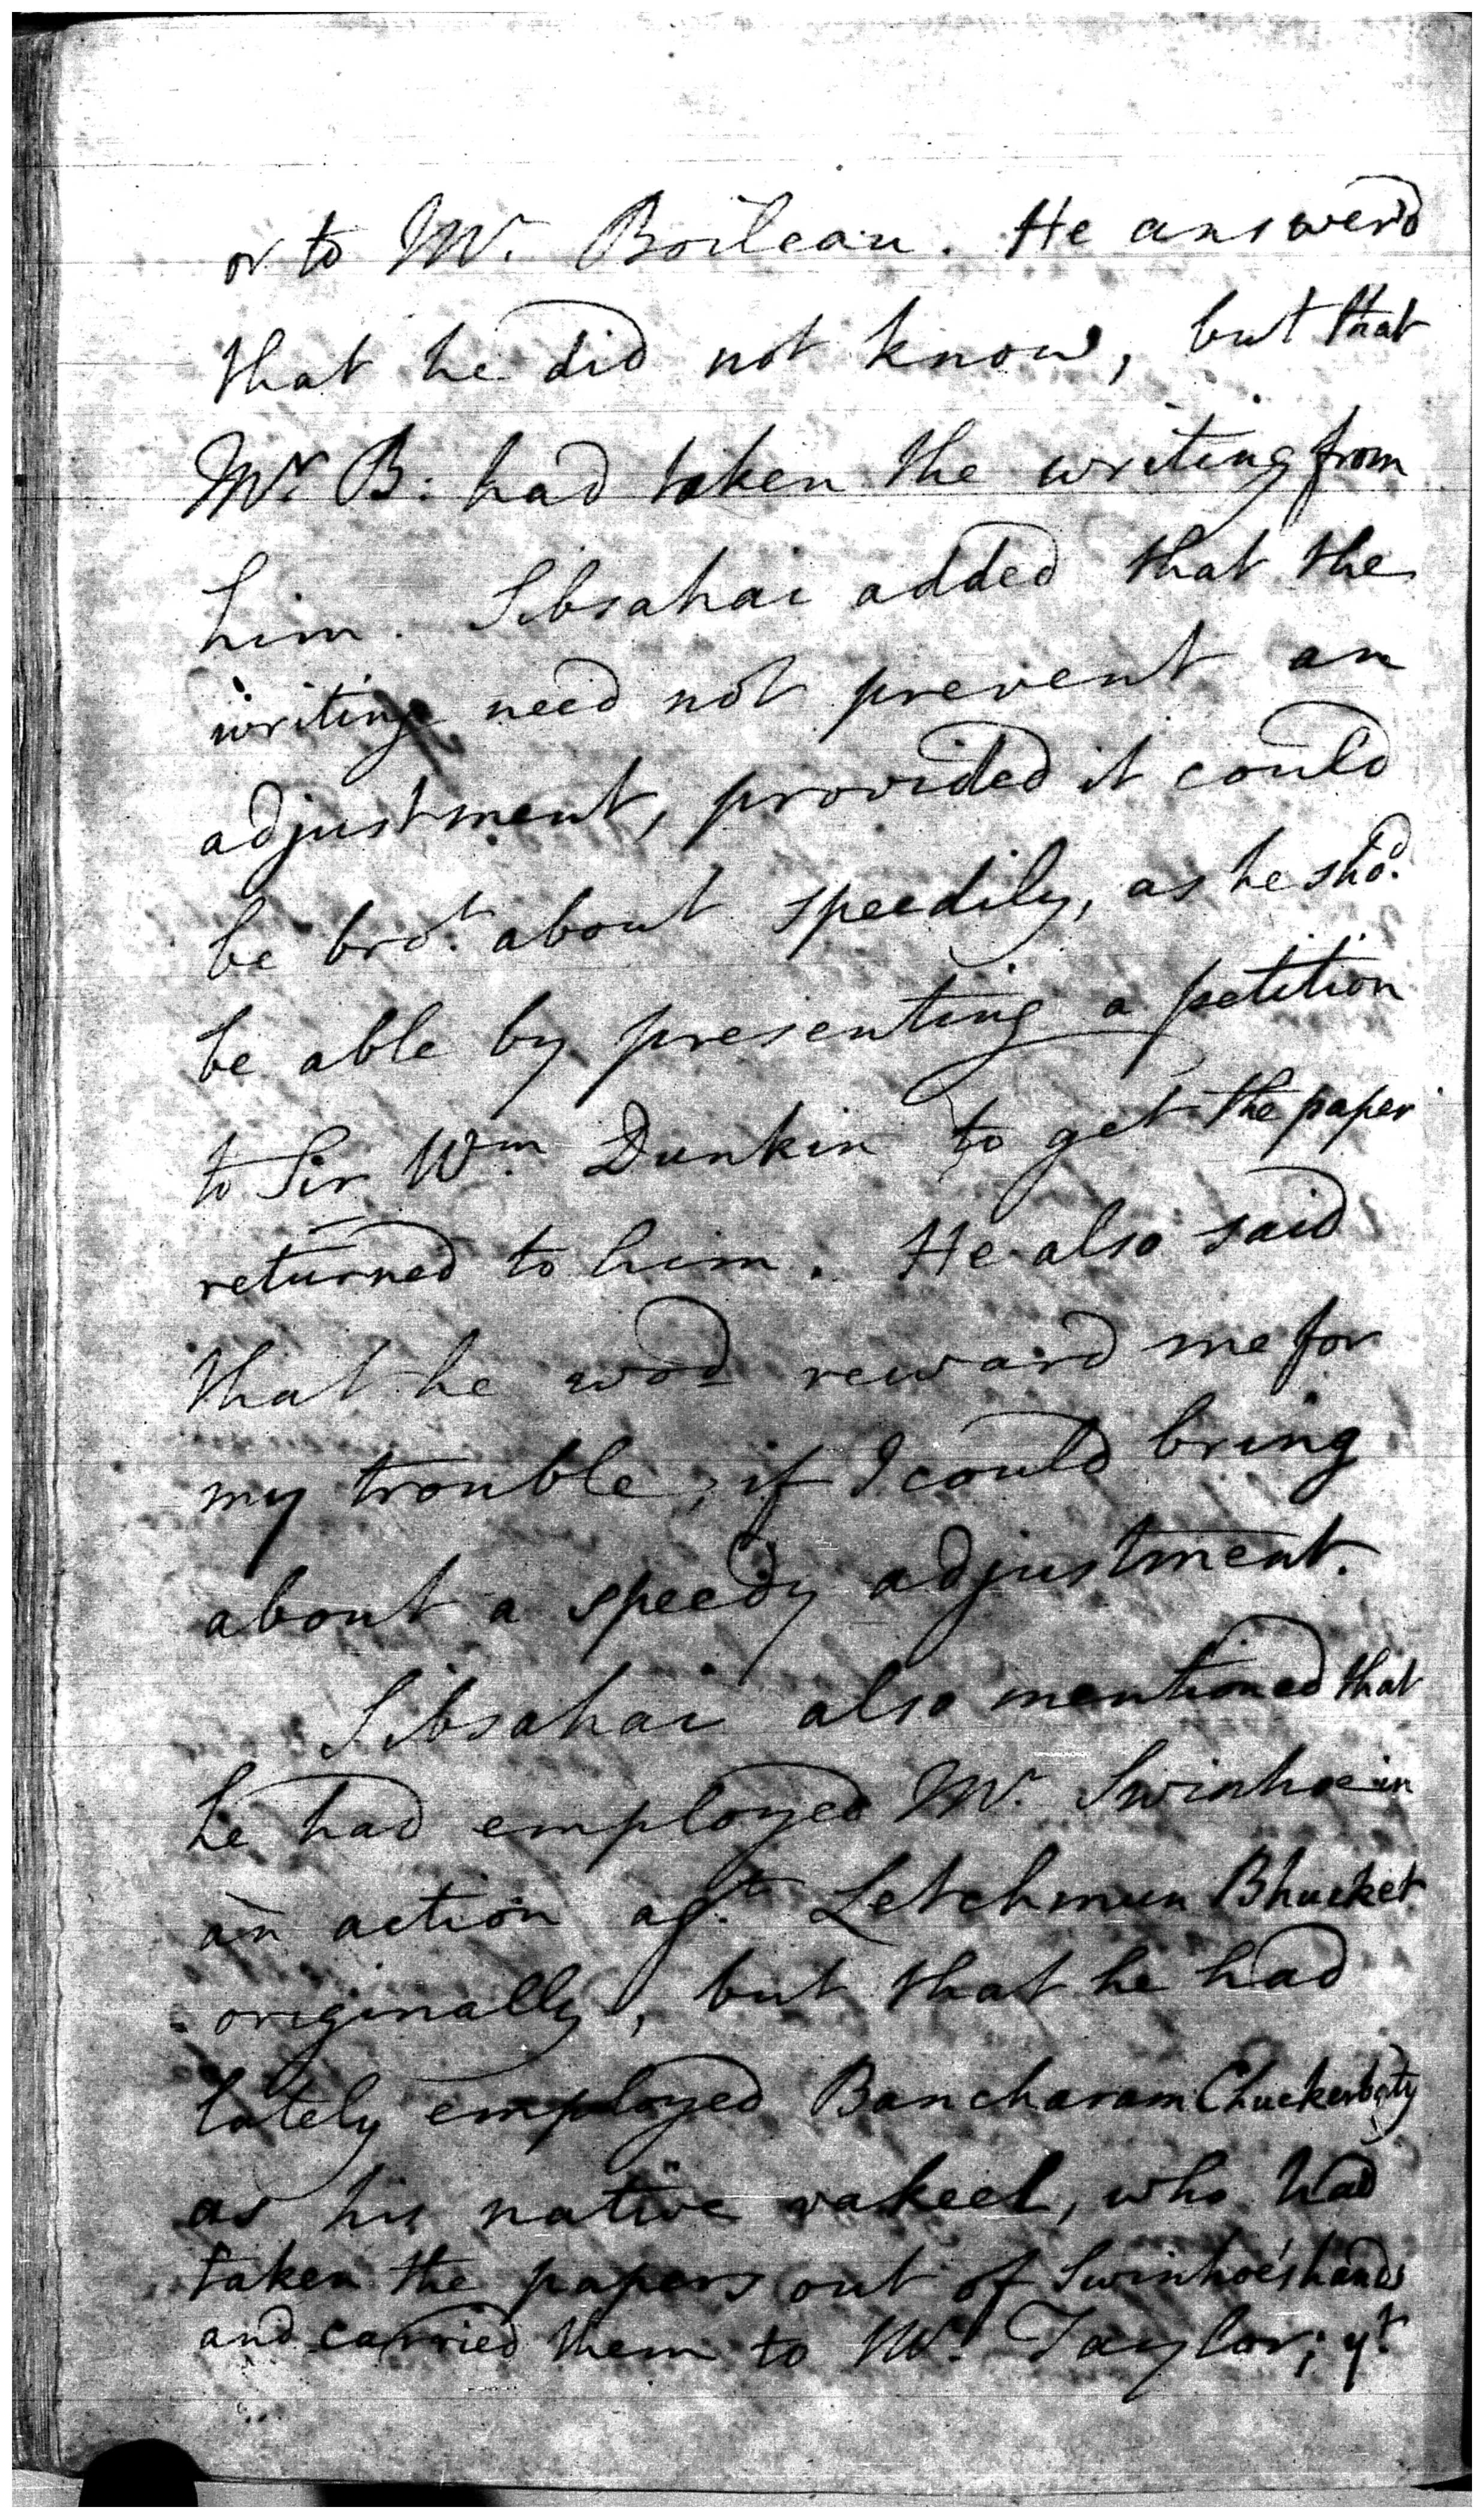 or to Mr. Boileau. He answer'd
that he did not know, but that
Mr. B: had taken the writing from
him. Sibsahai added that the
writing need not prevent an
adjustment, provided it could
be bro.t about speedily, as he sho.d
be able by presenting a petition
to Sir Wm Dunkin to get the paper
returned to him. He also said
that he wod reward me for
my trouble, if I could bring
about a speedy adjustment.
Sibsahai also mentioned that
he had employed Mr. Swinhoe in
an action ag.t Letchmun Bhucket
originally, but that he had
lately employed Bancharam Chuckerbuty
as his native vakeel, who had
taken the papers out of Swinhoe's hands
and carried them to Mr. Taylor; y.t